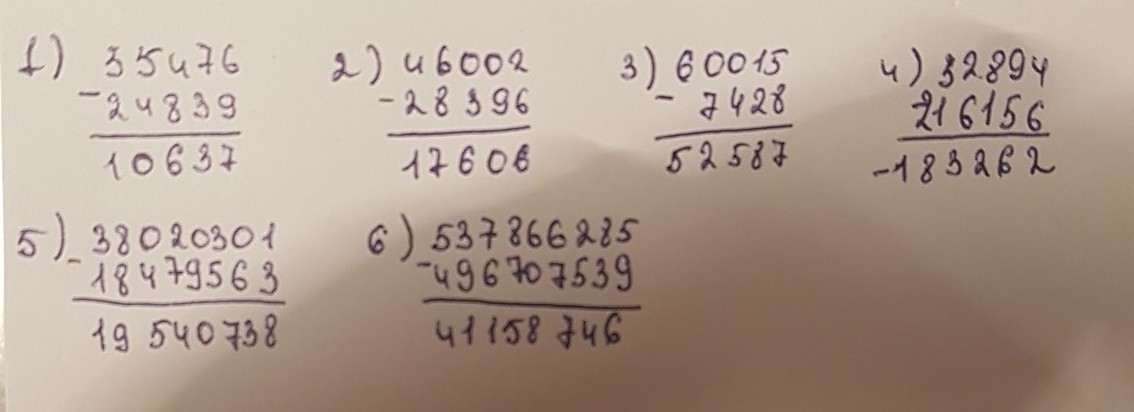 1) 35476 2) 46002 3) 60015 4) 32894
- 24839 - 28396 - 7428 216156
10637 17606 52587 -183262
5) 38020301 6) 537866285
- 18479563 - 496707539
19540738 41158746